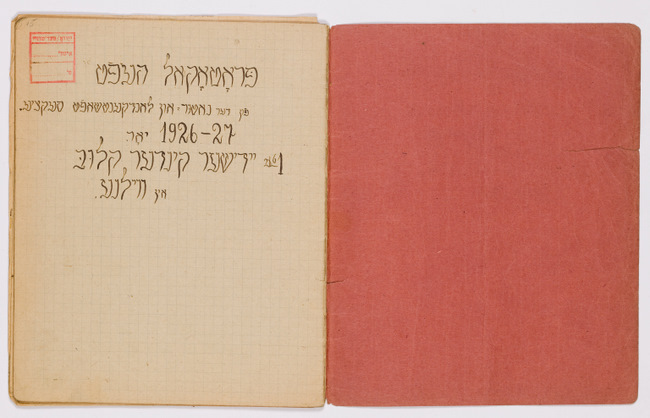 פראָטאָקאָל העפט
פון דער נאטור־און לאנדקענטשאפט סעקציע.
1926-27 יאר
1טער יידישער קינדער קלוב
אין ווילנע.